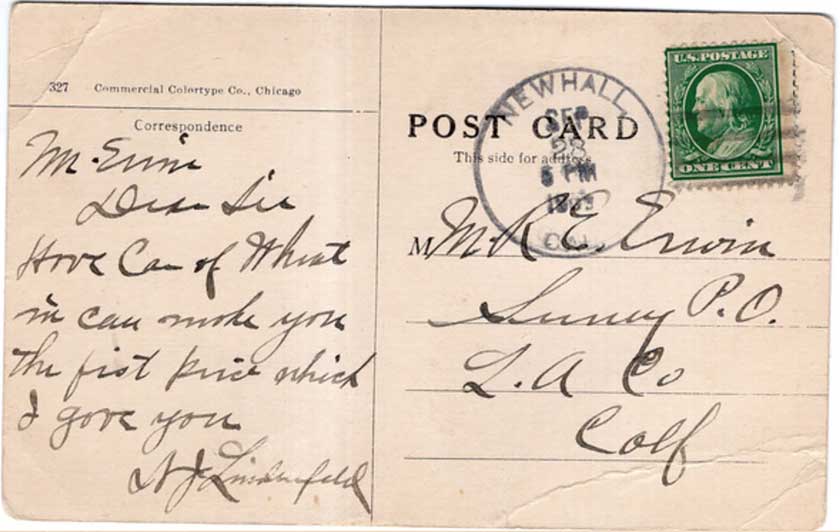 327 Commercial Colortype Co., Chicago
Correspondence
Mr. Erwin
Dear Sir
Have Car of Wheat
in can make you
the first price which
I gave you
POST CARD
This side for address
NEWHALL,
SEP
28
5 PM
CAL.
U.S. POSTAGE
ONE CENT
M Mr R E. Erwin
P.O.
L. A Co
Calf